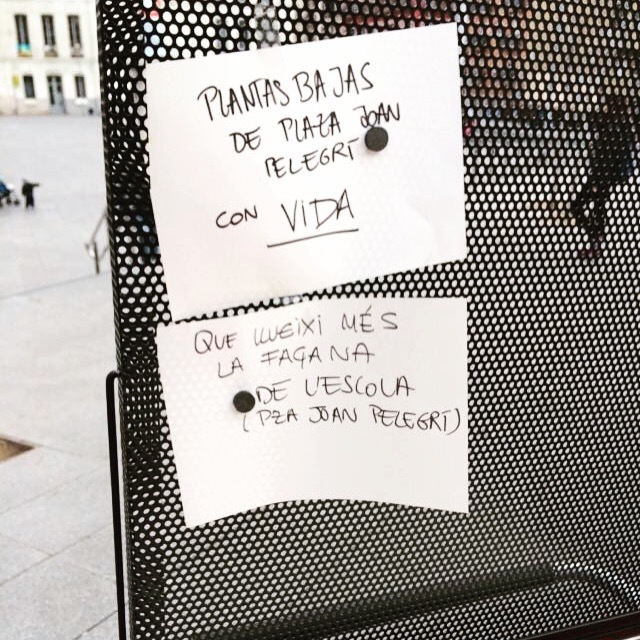 PLANTAS BAJAS
DE PLAZA JOAN
PELEGRI
CON VIDA
QUE LLUEIXI MÉS
LA FAÇANA
DE L'ESCOLA
(PZA JOAN PELEGRI)